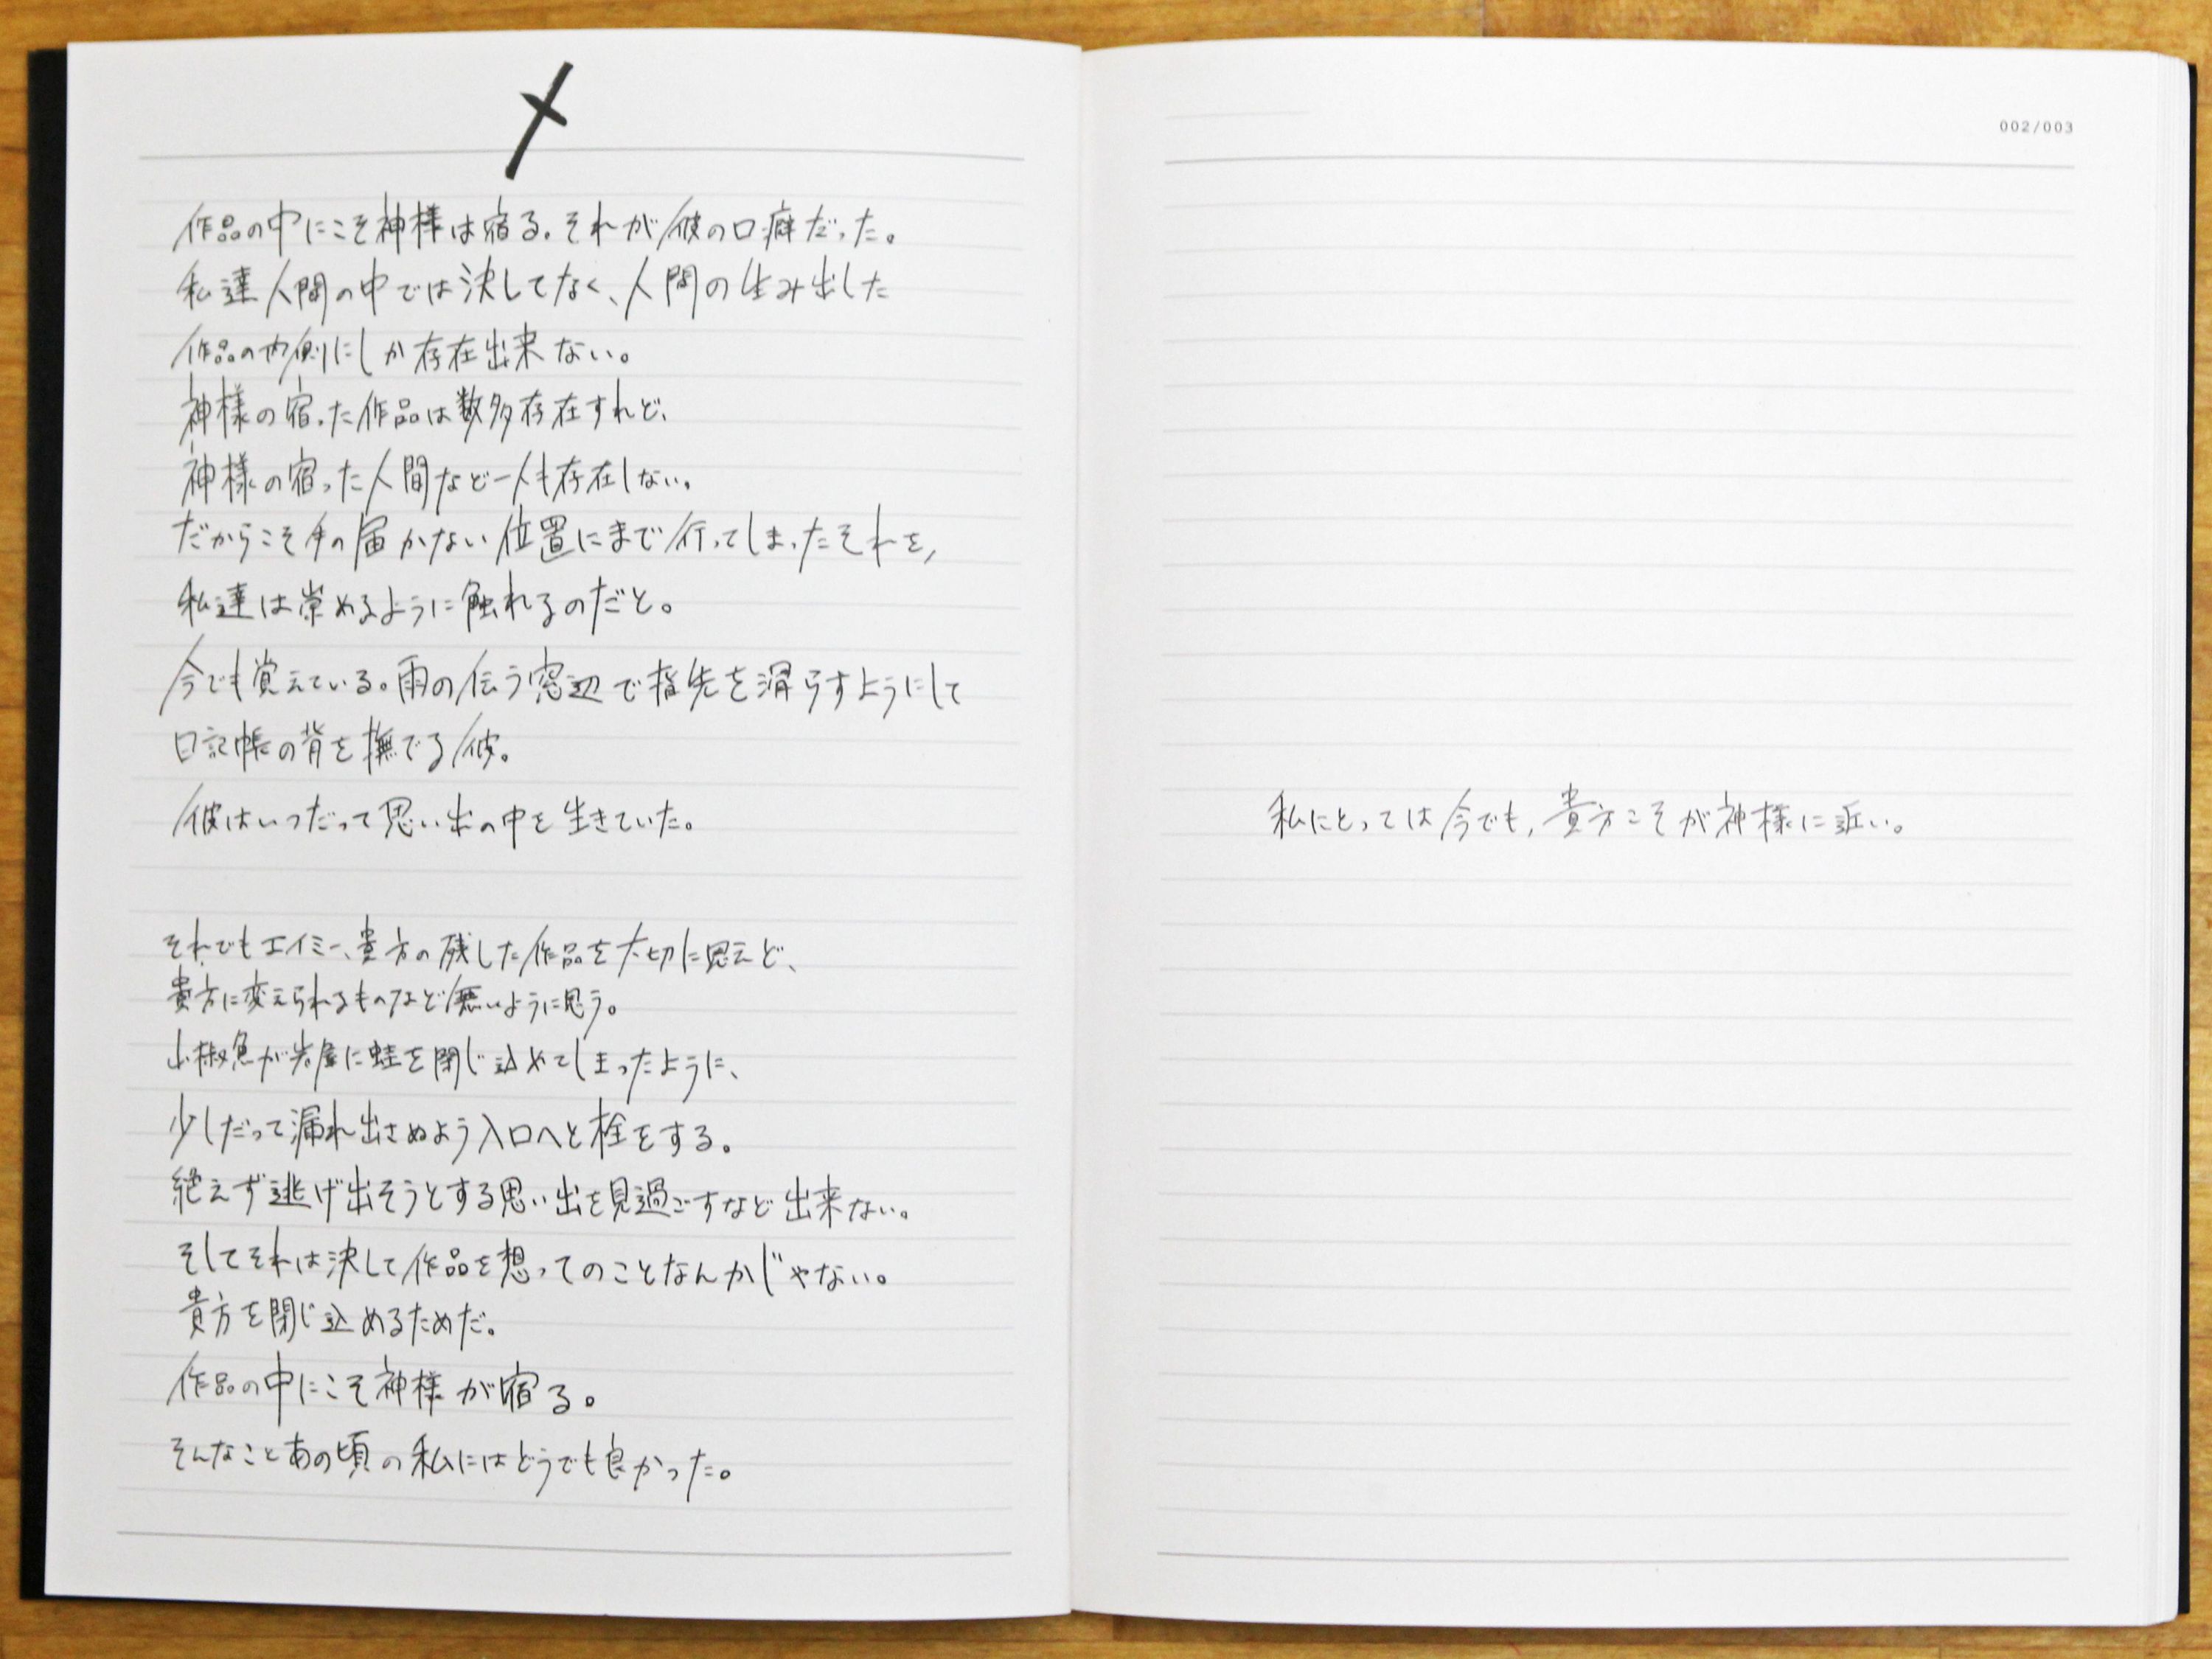 作品の中にこそ神様は宿る。それが彼の口癖だった。
私達人間の中では決してなく、人間の生み出した
作品の内側にしか存在出来ない。
神様の宿った作品は数多存在すれど、
神様の宿った人間など一人も存在しない。
だからこそ手の届かない位置にまで行ってしまったそれを、
私達は崇めるように触れるのだと。
今でも覚えている。雨の伝う窓辺で指先を滑らすようにして
日記帳の背を撫でる彼。
彼はいつだって思い出の中を生きていた。
それでもエイミー、貴方の残した作品を大切に思えど、
貴方に変えられるものなど無いように思う。
山椒魚が岩屋に蛙を閉じ込めてしまったように、
少しだって漏れ出さぬよう入口へと栓をする。
絶えず逃げ出そうとする思い出を見過ごすなど出来ない。
そしてそれは決して作品を想ってのことなんかじゃない。
貴方を閉じ込めるためだ。
作品の中にこそ神様が宿る。
そんなことあの頃の私にはどうでも良かった。
002/003
私にとっては今でも、貴方こそが神様に近い。